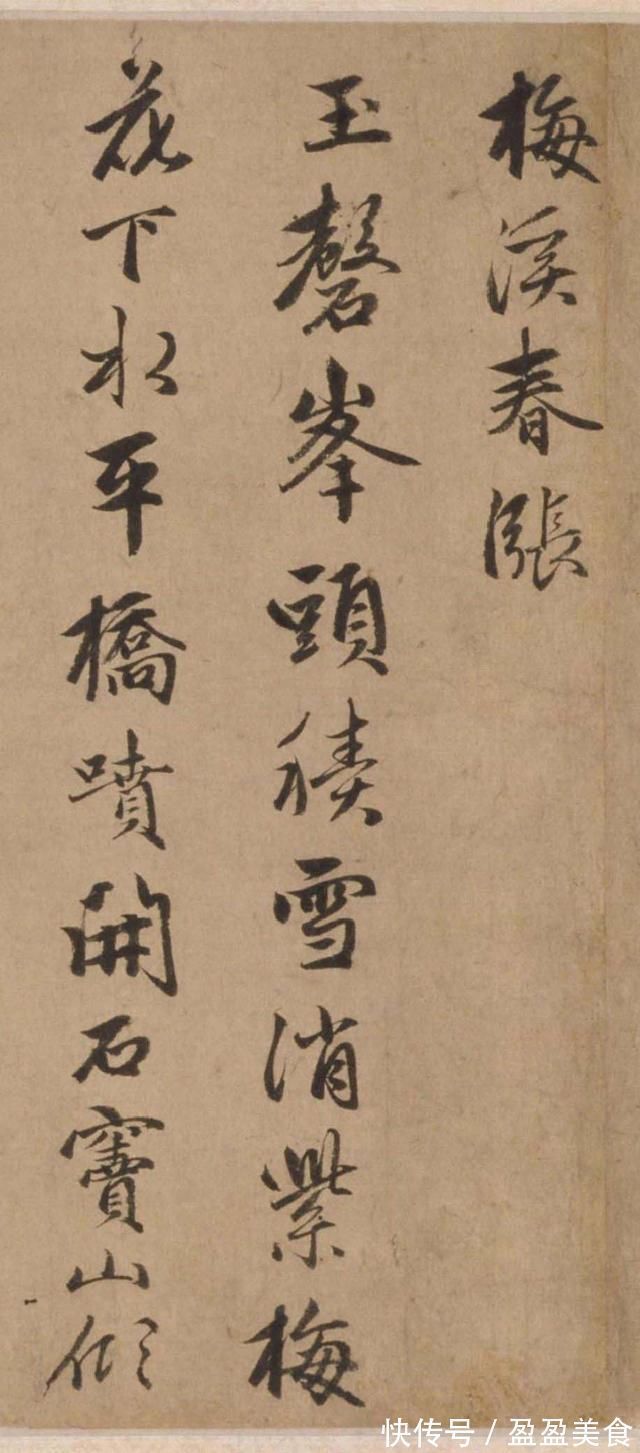 梅溪春漲
玉磬峯頭積雪消紫梅
花下水平橋噴開石竇山傾
快传号/盈盈美食